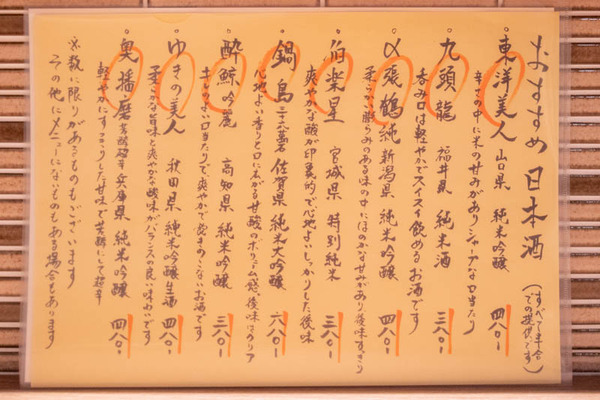 おすすめ日本酒
（すべて半合での提供です）
東洋美人 山口県 純米吟醸 四八〇-
辛口の中に米の甘みがありシャープな口当たり
九頭龍 福井県 純米酒 三八〇-
呑み口は軽やかでスイスイ飲めるお酒です
〆張鶴 純 新潟県 純米吟醸 四八〇-
柔らかく膨らみのある味の中にほのかな甘みがあり後味すっきり
伯楽星 宮城県 特別純米 三八〇-
爽やかな酸が印象的で心地よいしっかりした後味
鍋島 三十六萬石 佐賀県 純米大吟醸 六八〇-
心地よい香りと口に広がる甘酸のボリューム感、後味はクリア
酔鯨 吟麗 高知県 純米吟醸 三八〇-
キレのよい口当たりで爽やかで飲きのこないお酒です
ゆきの美人 秋田県 純米吟醸生酒 四八〇-
柔らかな旨味と爽やかな酸味がバランスの良い味わいです
奥播磨 兵庫県 純米吟醸 四八〇-
軽やかにすっきりした甘味で
※数に限りがあるものもございます
その他にメニューにないものもある場合もあります